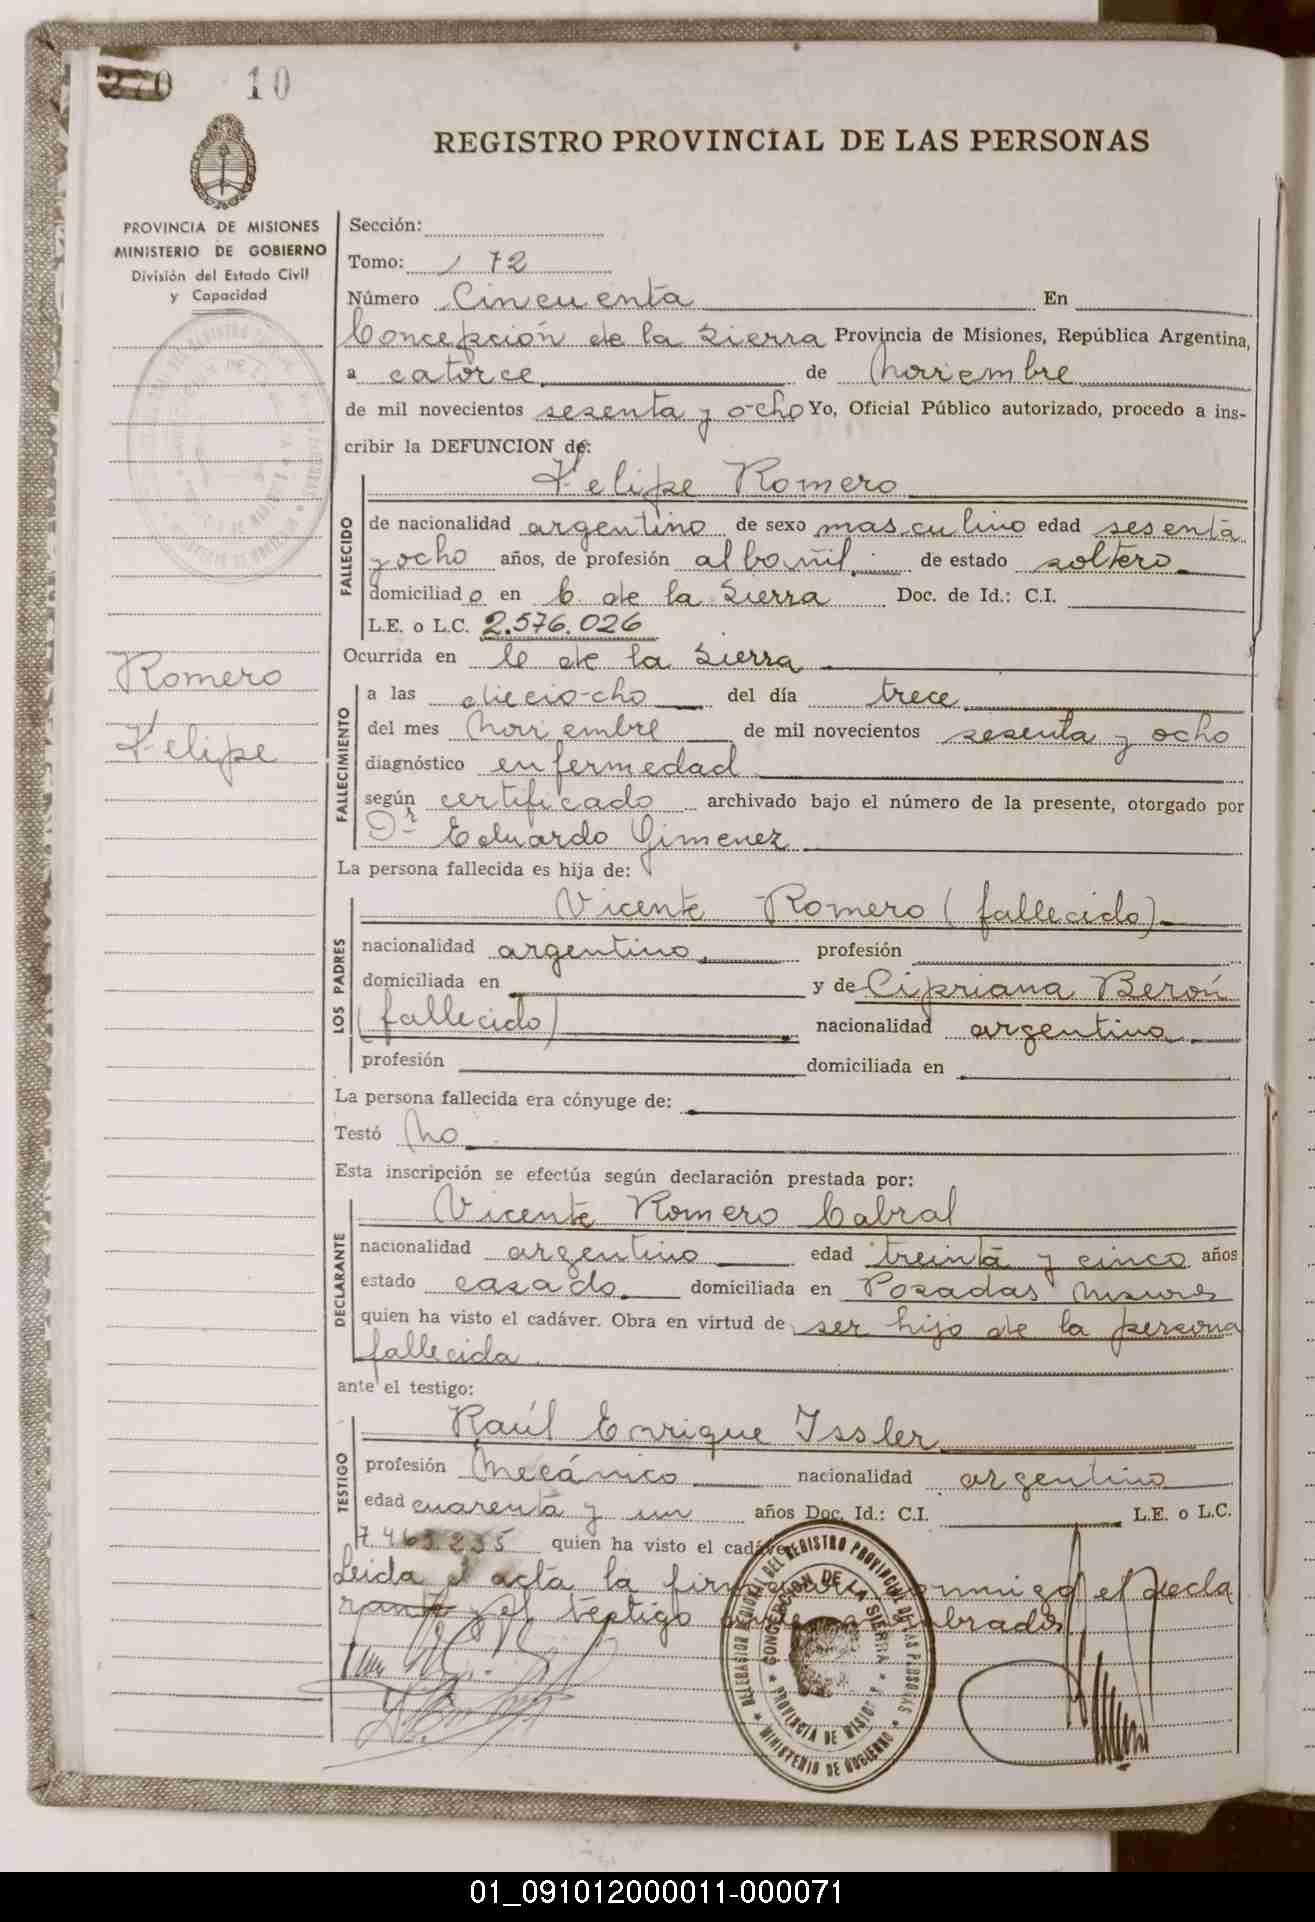 270 10
REGISTRO PROVINCIAL DE LAS PERSONAS
PROVINCIA DE MISIONES
MINISTERIO DE GOBIERNO
División del Estado Civil
y Capacidad
Sección:
Tomo: 1 72
Número Cincuenta En
Concepción de la Sierra Provincia de Misiones, República Argentina,
a catorce de Noviembre
de mil novecientos sesenta y ocho Yo, Oficial Público autorizado, procedo a ins-
cribir la DEFUNCION de:
Felipe Romero
FALLECIDO
de nacionalidad argentino de sexo masculino edad sesenta
y ocho años, de profesión albañil de estado soltero
domiciliado en C. de la Sierra Doc. de Id.: C.I.
L.E. o L.C. 2.576.026
Ocurrida en C de la Sierra
Romero
Felipe
FALLECIMIENTO
a las dieciocho del día trece
del mes Noviembre de mil novecientos sesenta y ocho
diagnóstico enfermedad
según certificado archivado bajo el número de la presente, otorgado por
Dr Eduardo Gimenez
La persona fallecida es hija de:
LOS PADRES
Vicente Romero (fallecido)
nacionalidad argentino profesión
domiciliada en y de Cipriana Berón
(fallecido) nacionalidad argentina
profesión domiciliada en
La persona fallecida era cónyuge de:
Testó No
Esta inscripción se efectúa según declaración prestada por:
DECLARANTE
Vicente Romero Cabral
nacionalidad argentino edad treinta y cinco años
estado casado domiciliada en Posadas Misiones
quien ha visto el cadáver. Obra en virtud de ser hijo de la persona
fallecida
ante el testigo:
TESTIGO
Raúl Enrique Issler
profesión Mecánico nacionalidad argentino
edad cuarenta y un años Doc. Id.: C.I. L.E. o L.C.
7.463.235 quien ha visto el cadáver
Leida el acta la firman conmigo el Decla
rante y el Testigo
DELEGACION REGIONAL DEL REGISTRO PROVINCIAL DE LAS PERSONAS
CONCEPCION DE LA SIERRA
PROVINCIA DE MISIONES
MINISTERIO DE GOBIERNO
01_091012000011-000071